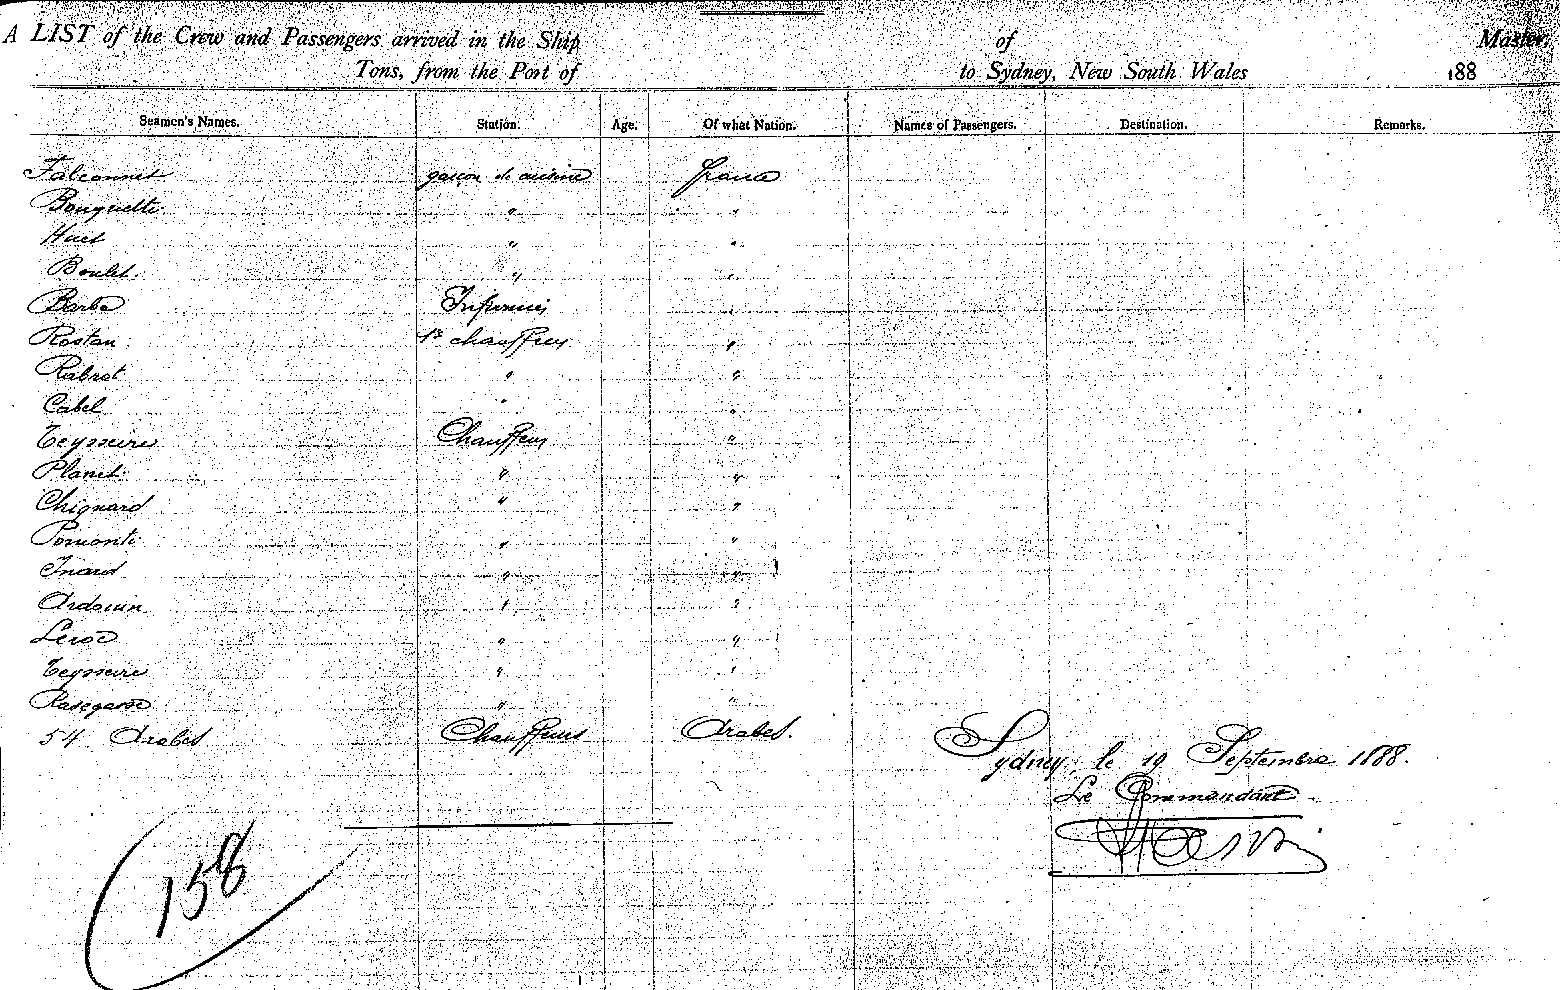 A LIST of the Crew and Passengers arrived in the Ship of Master,
Tons, from the Port of to Sydney, New South Wales 188
Seamen's Names. Station. Age. Of what Nation. Names of Passengers. Destination. Remarks.
Falconnet garçon de cuisine france
Bouquette " "
Huet " "
Boulet. " "
Barbe "
Rostan 1er chauffeur "
Rabrot " "
Cabel " "
Teysseire Chauffeur "
Planet " "
Chignard " "
Pomonti " "
Inard " "
Ardouin " "
" "
Teysseire " "
" "
54 Arabes Chauffeurs Arabes.
Sydney, le 19 Septembre 1888.
Le Commandant
158